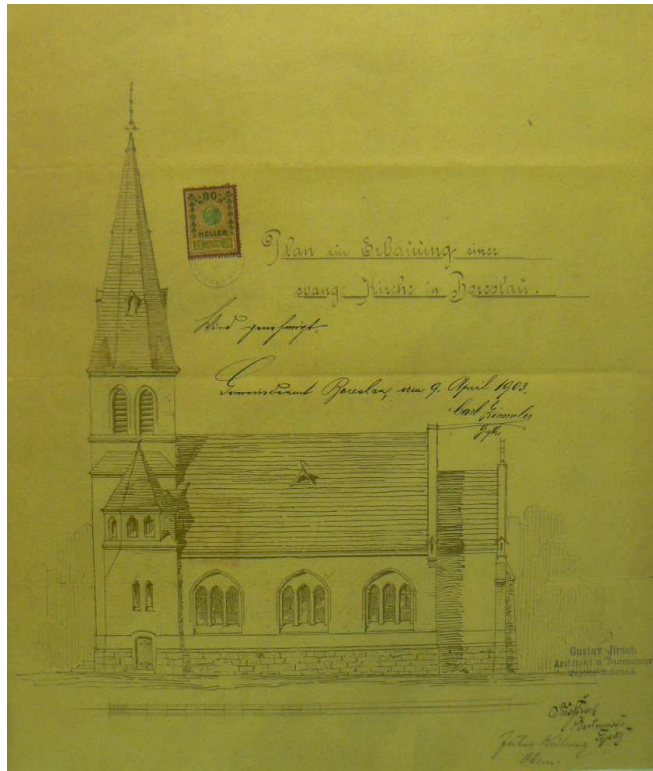 80
HELLER
Plan zur Erbauung einer
evang. Kirche in Boreslau.
Wird genehmigt.
Gemeindeamt Boreslau, am 9. April 1903.
Carl
Gustav Jirsch
Architekt u. Baumeister